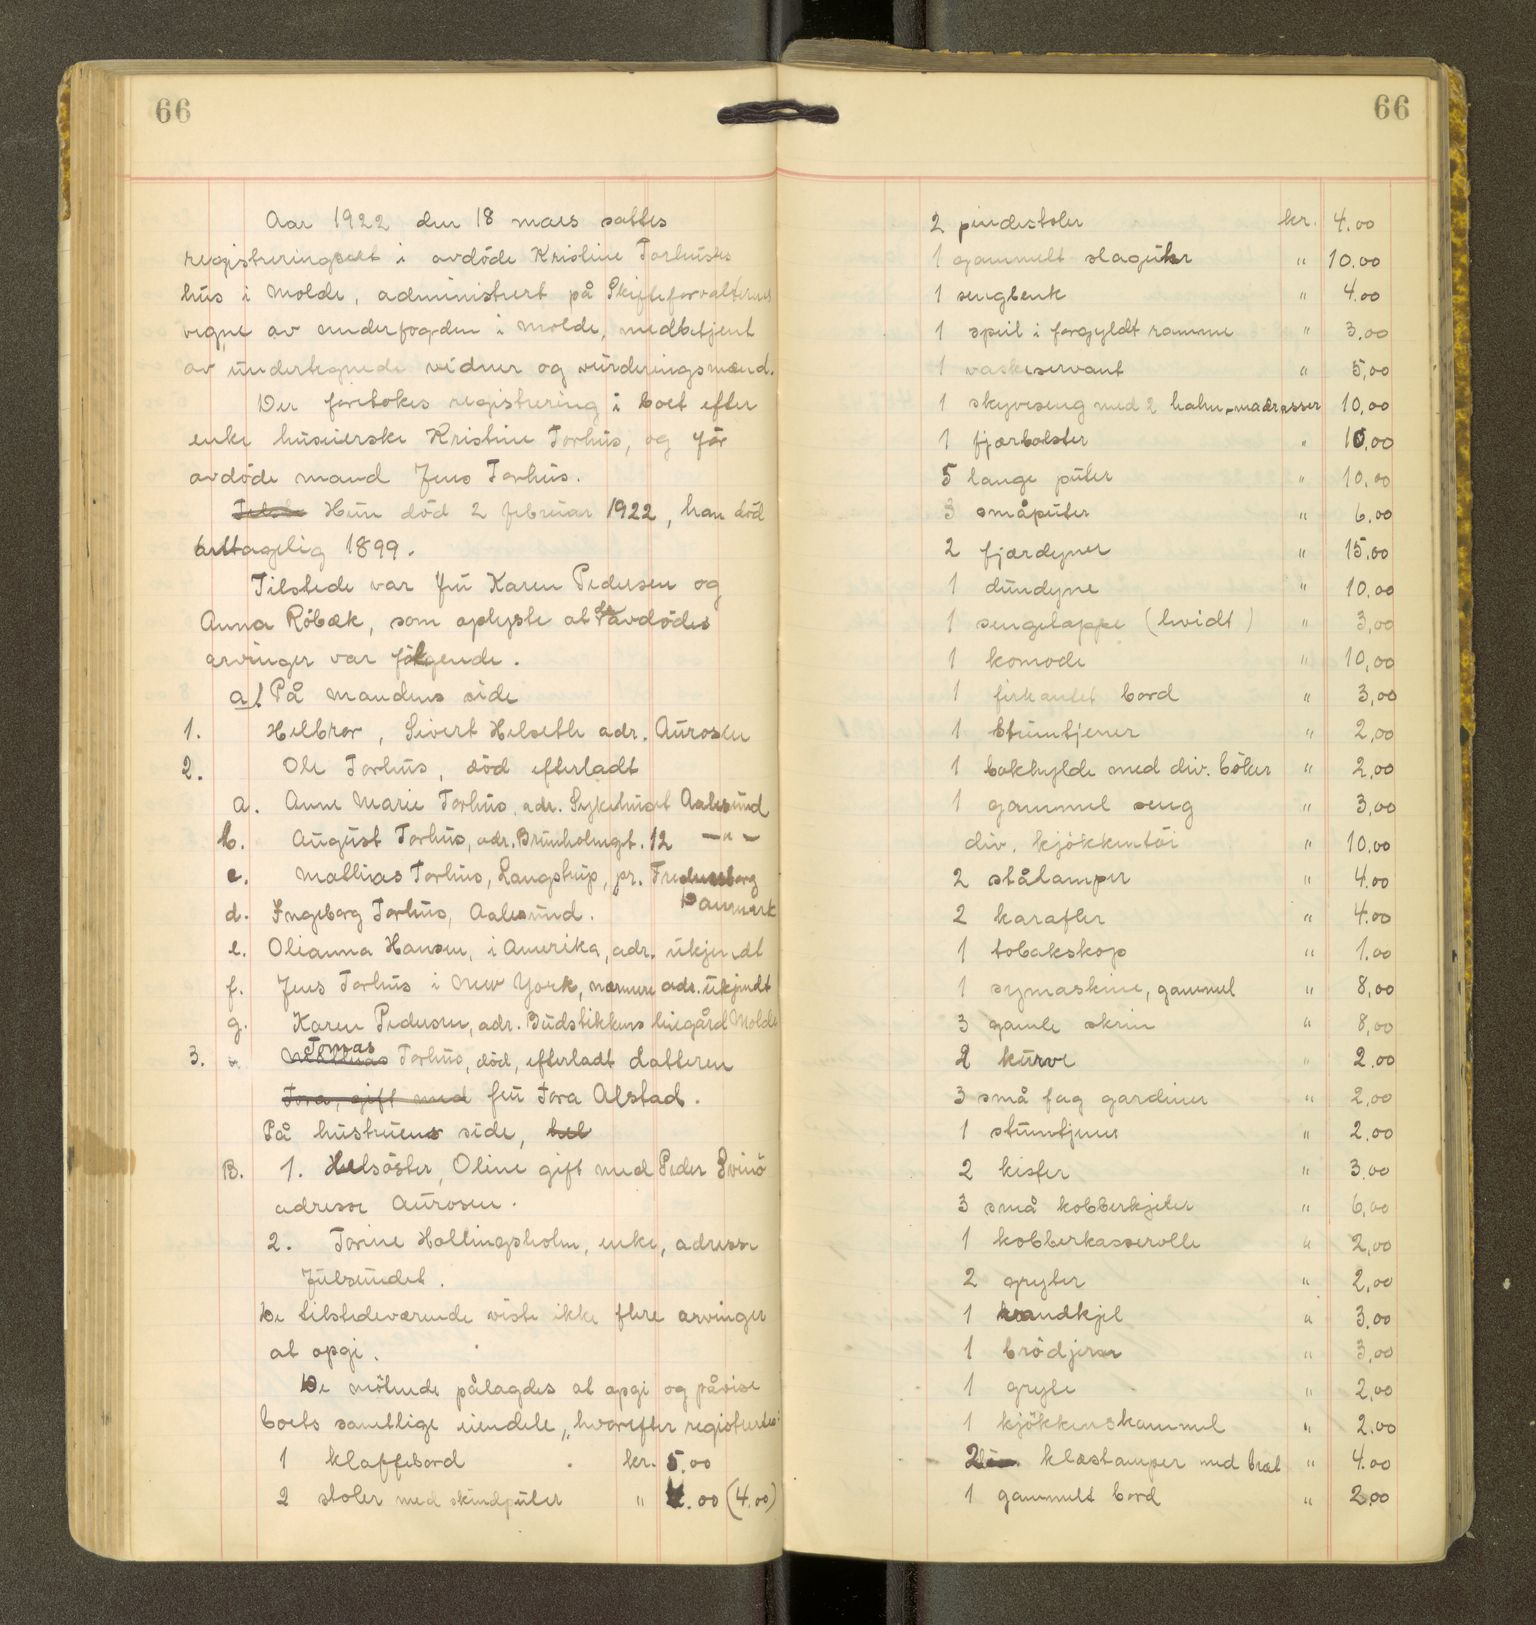 66
Aar 1922 den 18 mars sattes
registreringsret i avdöde Kristine Torhus's
hus i Molde, administrert på Skifteforvalterens
vegne av underfogden i Molde, medbetjent
av undertegnede vidner og vurderingsmænd.
Der foretokes registrering i boet efter
enke huseierske Kristine Torhus, og før
avdöde mand Jens Torhus.
Hun död 2 februar 1922, han död
anttagelig 1899.
Tilstede var fru Karen Pedersen og
Anna Röbæk, som oplyste at avdödes
arvinger var følgende.
a/. På mandens side
1. Helbror, Sivert Helseth adr. Aurosen
2. Ole Torhus, död efterladt
a. Anne Marie Torhus, adr. Sykehuset Aalesund
b. August Torhus, adr. Brunholmgt. 12 —"—
c. Mathias Torhus, Langstrup, pr. Fredensborg
Danmark
d. Ingeborg Torhus, Aalesund.
e. Olianna Hansen, i Amerika, adr. ukjendt
f. Jens Torhus i New York, nærmere adr. ukjendt
g. Karen Pedersen, adr. Budstikkens bingård Molde
3. Tomas Torhus, död, efterladt datteren
Tora, gift med fru Tora Alstad.
På hustruens side, hel
B. 1. Helsöster, Oline gift med Peder Svinö
adresse Aurosen.
2. Torine Hollingsholm, enke, adresse
Julsundet.
De tilstedeværende viste ikke flere arvinger
at opgi.
De mötende pålagdes at opgi og påvise
boets samtlige eiendele, hvorefter registrertes:
1 klaffebord kr. 5.00
2 stoler med skindputer " 4.00 (4.00)
66
2 pindestoler kr. 4.00
1 gammelt slaguhr " 10.00
1 sengbenk " 4.00
1 speil i forgyldt ramme " 3.00
1 vaskeservant " 5,00
1 skyveseng med 2 halm-madrasser 10,00
1 fjærbolster " 10.00
5 lange puter " 10,00
3 småputer " 6.00
2 fjærdyner " 15.00
1 dundyne " 10.00
1 sengeteppe (hvidt) " 3,00
1 komode " 10,00
1 firkantet bord " 3,00
1 stumtjener " 2,00
1 bokhylde med div. böker " 2,00
1 gammel seng " 3,00
div. kjökkentöi " 10.00
2 stålamper " 4.00
2 karafler " 4.00
1 tobakskop " 1.00
1 symaskine, gammel " 8,00
3 gamle skrin " 8,00
2 kurve " 2.00
3 små fag gardiner " 2,00
1 stumtjener " 2.00
2 kister " 3.00
3 små kobberkjeler " 6,00
1 kobberkasserolle " 2,00
2 gryter " 2,00
1 vandkjel " 3.00
1 brödjern " 3,00
1 gryte " 2,00
1 kjökkenskammel " 2.00
2 klæstamper med bræt " 4.00
1 gammelt bord " 2.00